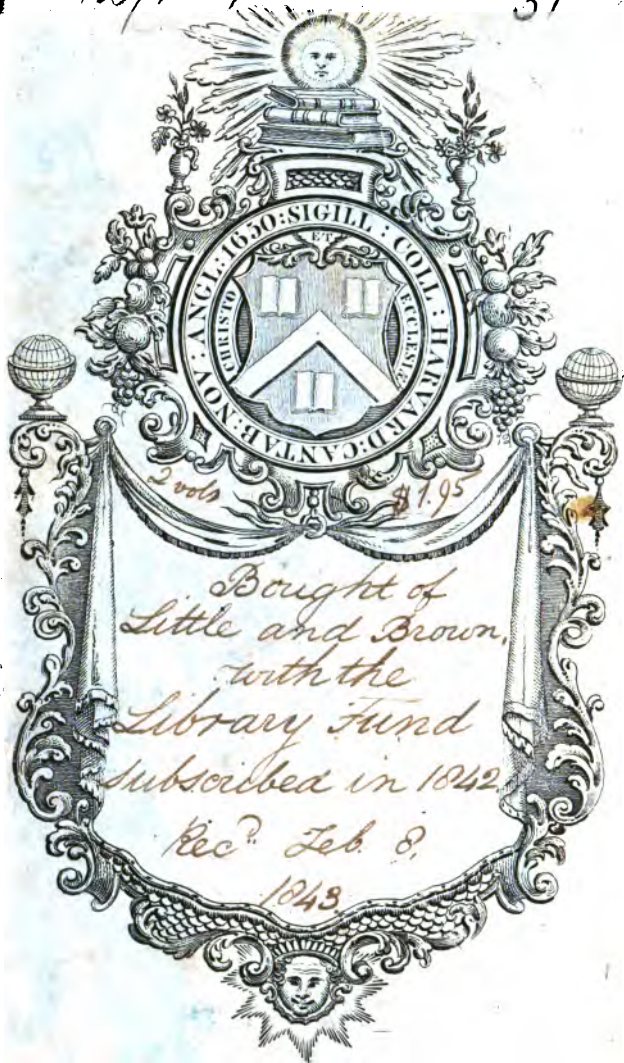 SIGILL : COLL : HARVARD : CANTAB : NOV : ANGL : 1650 :
ET
CHRISTO
ECCLESIÆ
2 vols
$1.95
Bought of
Little and Brown,
with the
Library Fund
subscribed in 1842
Rec.d Feb. 8,
1843.